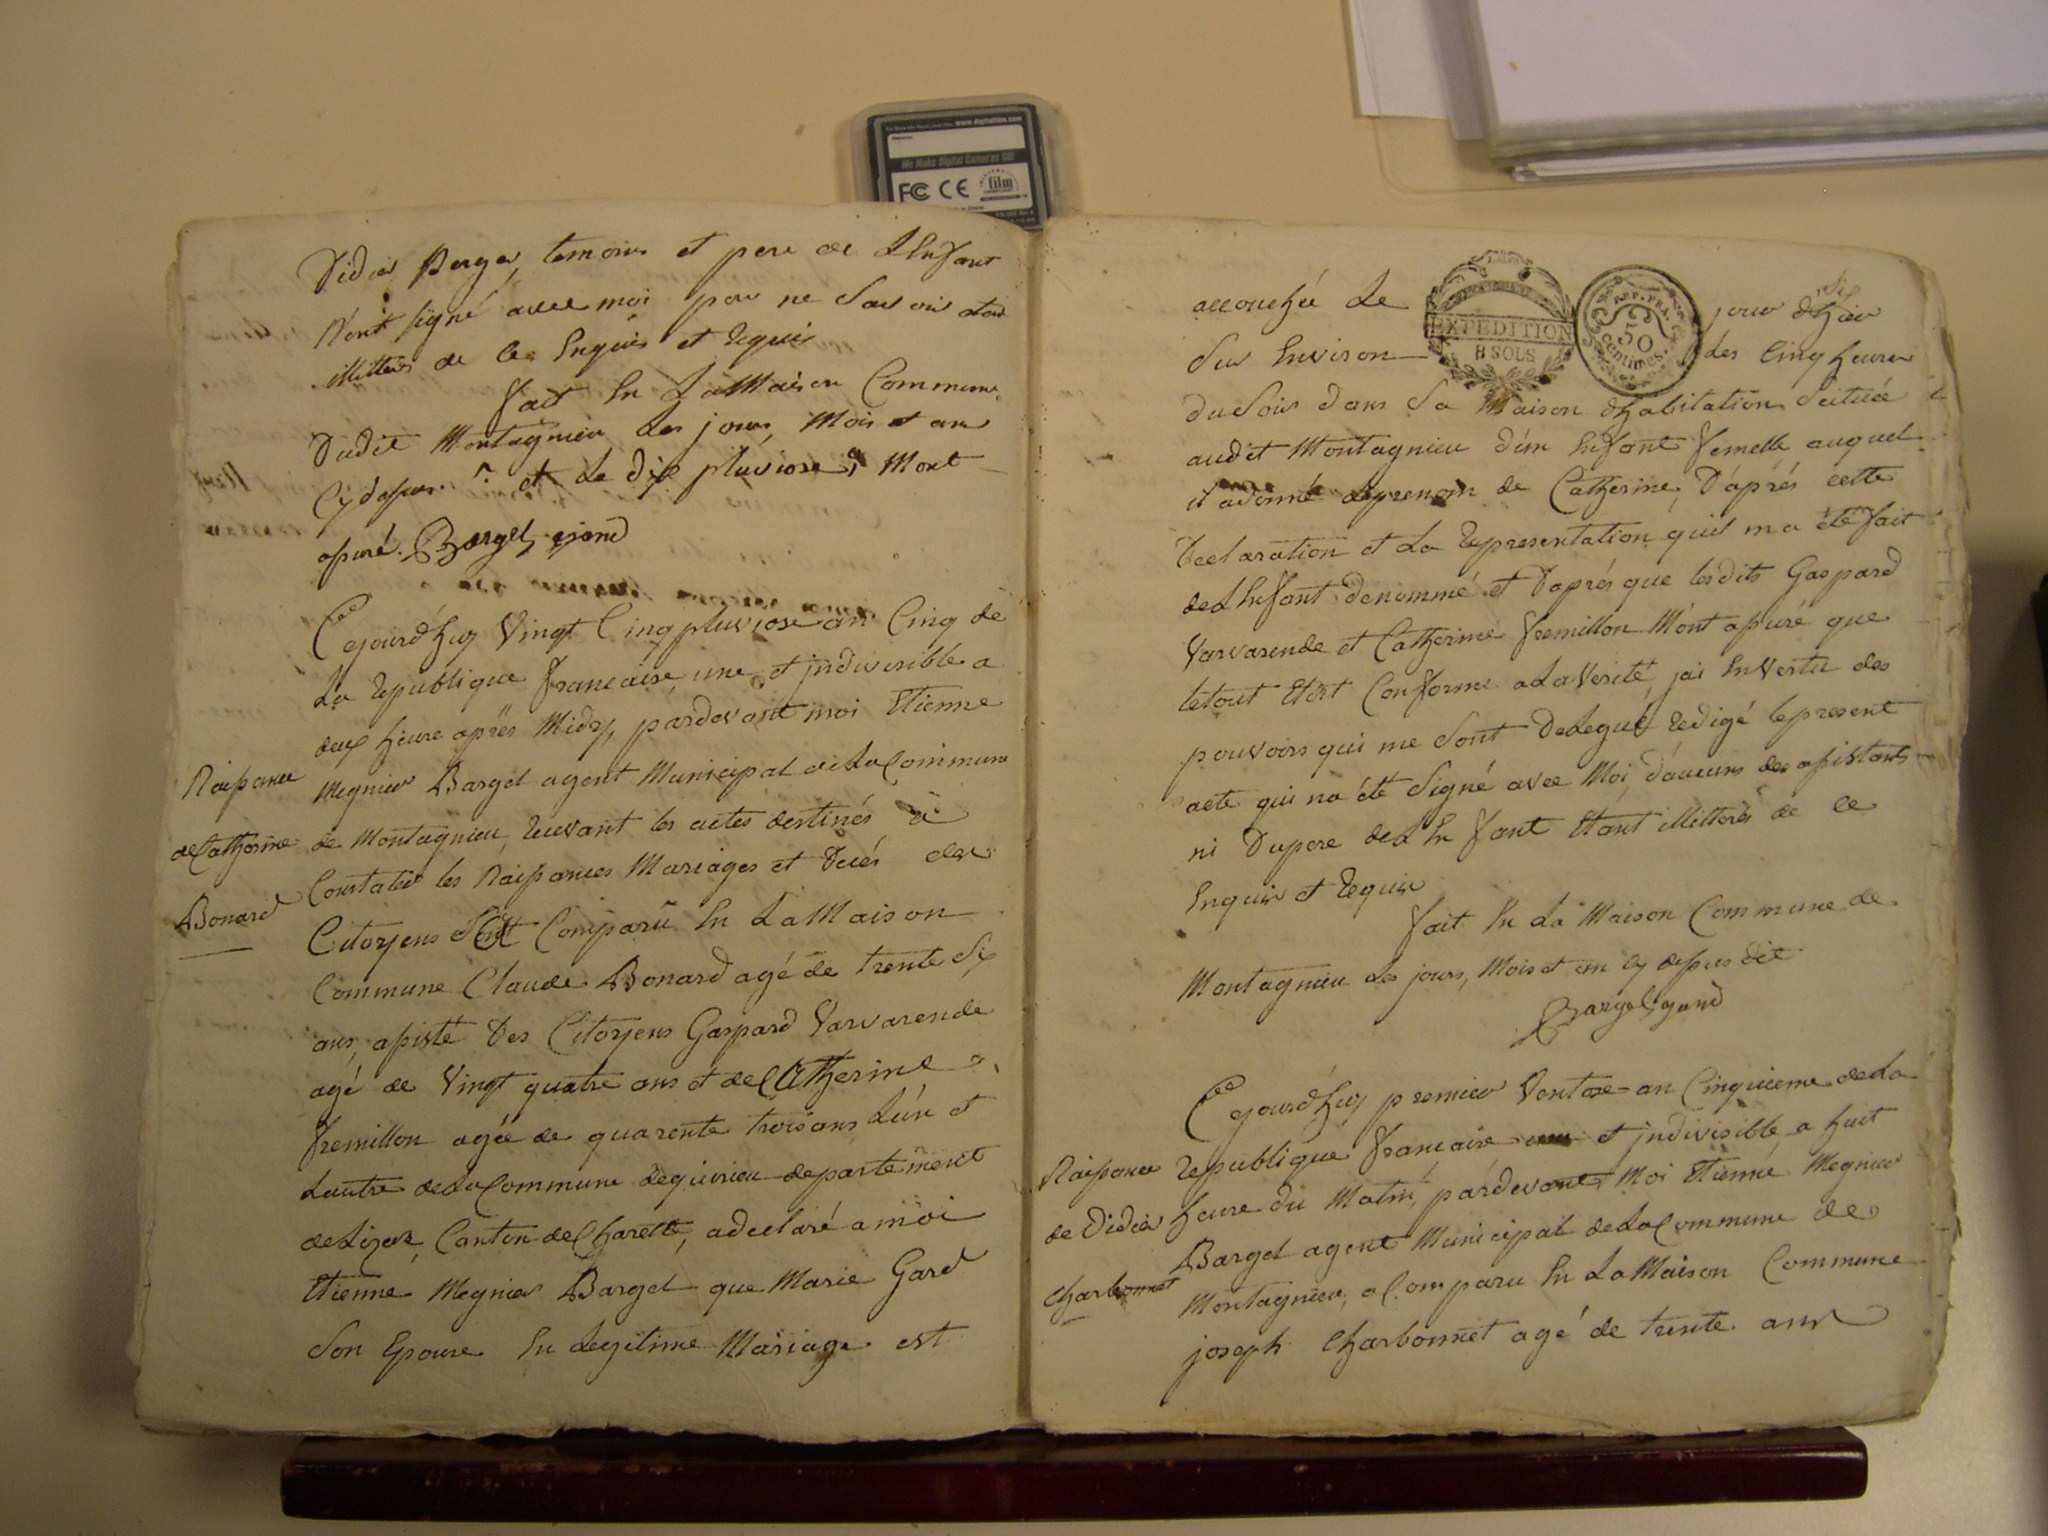 www.digitalfilm.com
We Make Digital Cameras GO!
FC CE film
Didier Berger, temoins et pere de L'Enfant
N'ont signé avec moi pour ne savoir etant
illitterés de ce Enquis et requis
fait En LaMaison Commune
Dudit Montagnieu Les jours, Mois et an
Cy depus. et Le dix pluviose, Mont
apuré. Bargel, ejend
Cejourd'huy Vingt Cinq pluviose an Cinq de
La republique francaise, une et jndivisible a
deux heure apres Midy, pardevant moi Etienne
Naipance
Megnier Bargel agent Municipal de La Commune
de Catherine
de Montagnieu, recevant les actes destinés à
Constater les Naipances Mariages et Décés des
Bonard
Citoyens Comparu En LaMaison
Commune Claude Bonard agé de trente six
ans, apisté Des Citoyens Gaspard Varvarende
agé de Vingt quatre ans et de Catherine
fremillon agée de quarente troisans L'ún et
Lautre de La Commune dequirieu departement
deLizere, Canton de Charette, adeclaré a moi
Etienne Megnier Bargel que Marie Gard
Son Epouse En Legitime Mariage est
accouchée Le jour d'hier
six
EXPEDITION
8 SOLS
50
centimes.
Sur Environ Les Cinq heures
du Soir dans Sa Maison d'habitation Scituée
audit Montagnieu d'ún Enfant femelle auquel
il adonné leprenom de Catherine, D'aprés cette
Declaration et La representation quil ma été fait
deL'Enfant denommé et D'aprés que lesdits Gaspard
Varvarende et Catherine fremillon Mont apuré que
letout Etoit Conforme aLaVerité, jai EnVertu des
pouvoirs qui me Sont Delegué, redigé lepresent
acte qui na été Signé avec Moi, d'aucuns des apistants
ni Dupere deL'Enfant Etant illitterés de ce
Enquis et requis
fait En La Maison Commune de
Montagnieu Les jours, Mois et an cy depus dit
Bargel, ejend
Cejourd'huy premier Ventose an Cinquieme de La
Naipance
republique francaise et jndivisible a huit
de Didier
heure du Matin, pardevant Moi Etienne Megnier
Bargel agent Municipal de La Commune de
Charbonnet
Montagnieu, a Comparu En La Maison Commune
joseph Charbonnet agé de trente ans